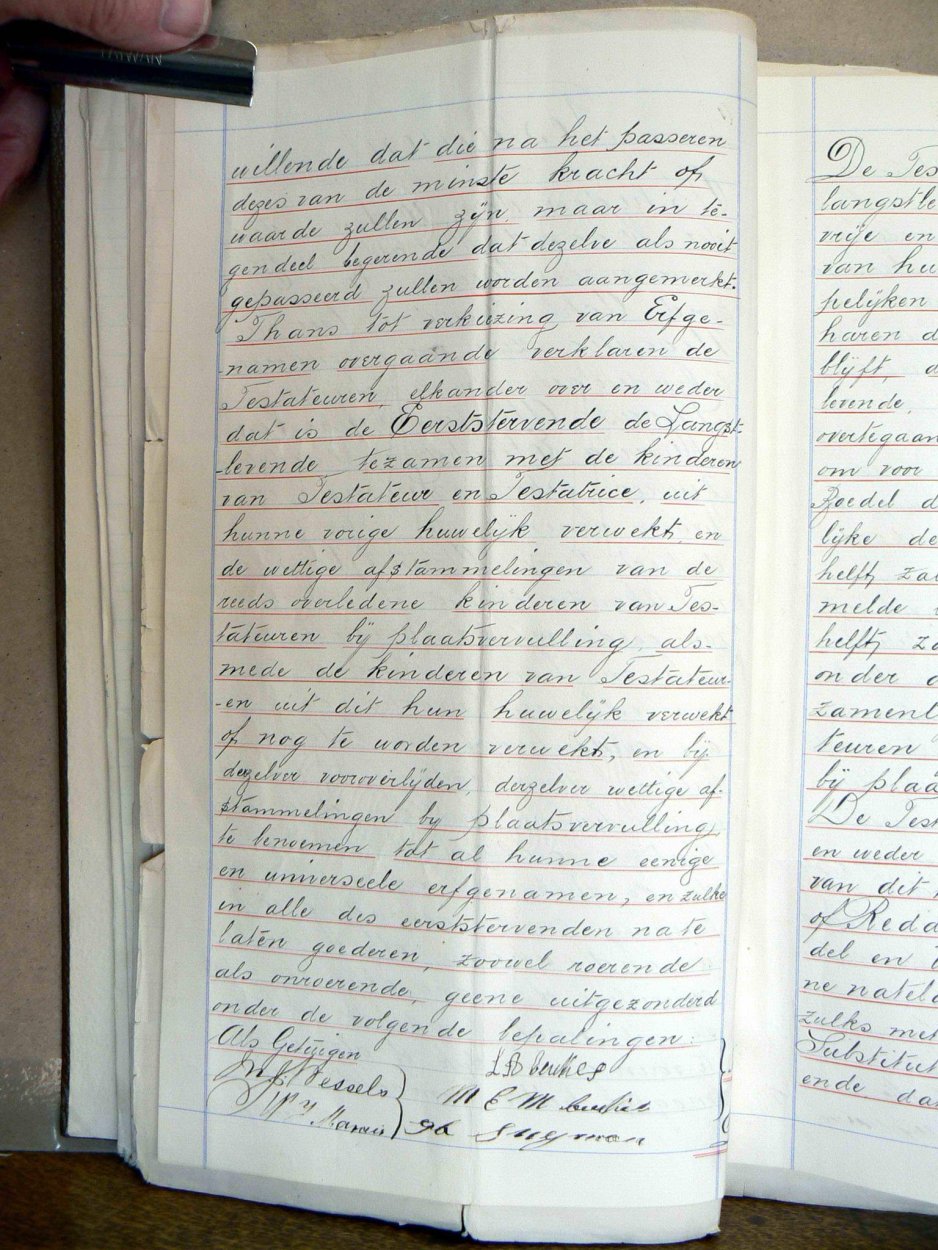 willende dat die na het passeren
dezes van de minste kracht of
waarde zullen zijn, maar in te-
gendeel begerende dat dezelve als nooit
gepasseerd zullen worden aangemerkt.
Thans tot verkiezing van Erfge-
-namen overgaande verklaren de
Testateuren, elkander over en weder
dat is de Eerststervende de Langst-
-levende tezamen met de kinderen
van Testateur en Testatrice, uit
hunne vorige huwelijk verwekt, en
de wettige afstammelingen van de
reeds overledene kinderen van Tes-
tateuren bij plaatsvervulling, als-
mede de kinderen van Testateur-
-en uit dit hun huwelijk verwekt
of nog te worden verwekt, en bij
derzelver vooroverlijden, derzelver wettige af-
stammelingen by plaatsvervulling,
te benoemen tot al hunne eenige
en universeele erfgenamen, en zulks
in alle des eerststervenden na te
laten goederen, zoowel roerende
als onroerende, geene uitgezonderd
onder de volgende bepalingen:
Als Getuigen
Wessels
Marais
M E M
Snyman
De Tes
langstle
vrije en
van hu
pelijken
haren d
blijft, a
levende,
overtegaan
om voor
Boedel d
lijke de
helft, za
melde
helft, za
onder d
zamenl
teuren
bij plaa
De Test
en weder
van dit
of Reda
del en
ne natela
zulks met
Substitut
ende, da